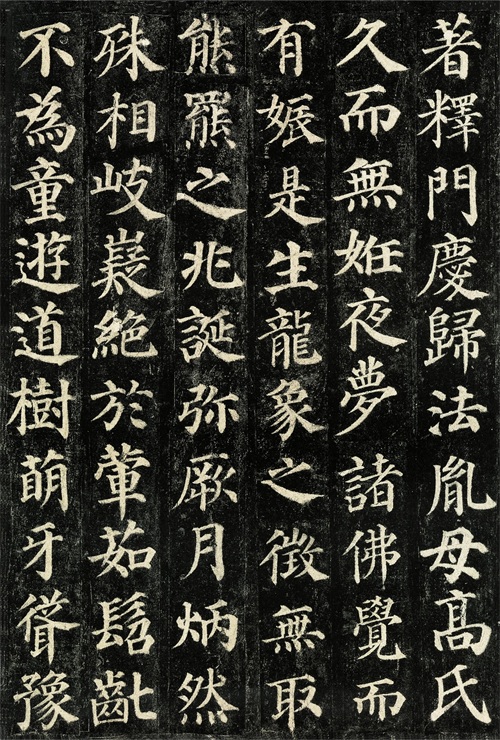 著釋門慶歸法胤母高氏
久而無妊夜夢諸佛覺而
有娠是生龍象之徵無取
熊羆之兆誕弥厥月炳然
殊相岐嶷絕於葷茹髫齔
不為童遊道樹萌牙聳豫